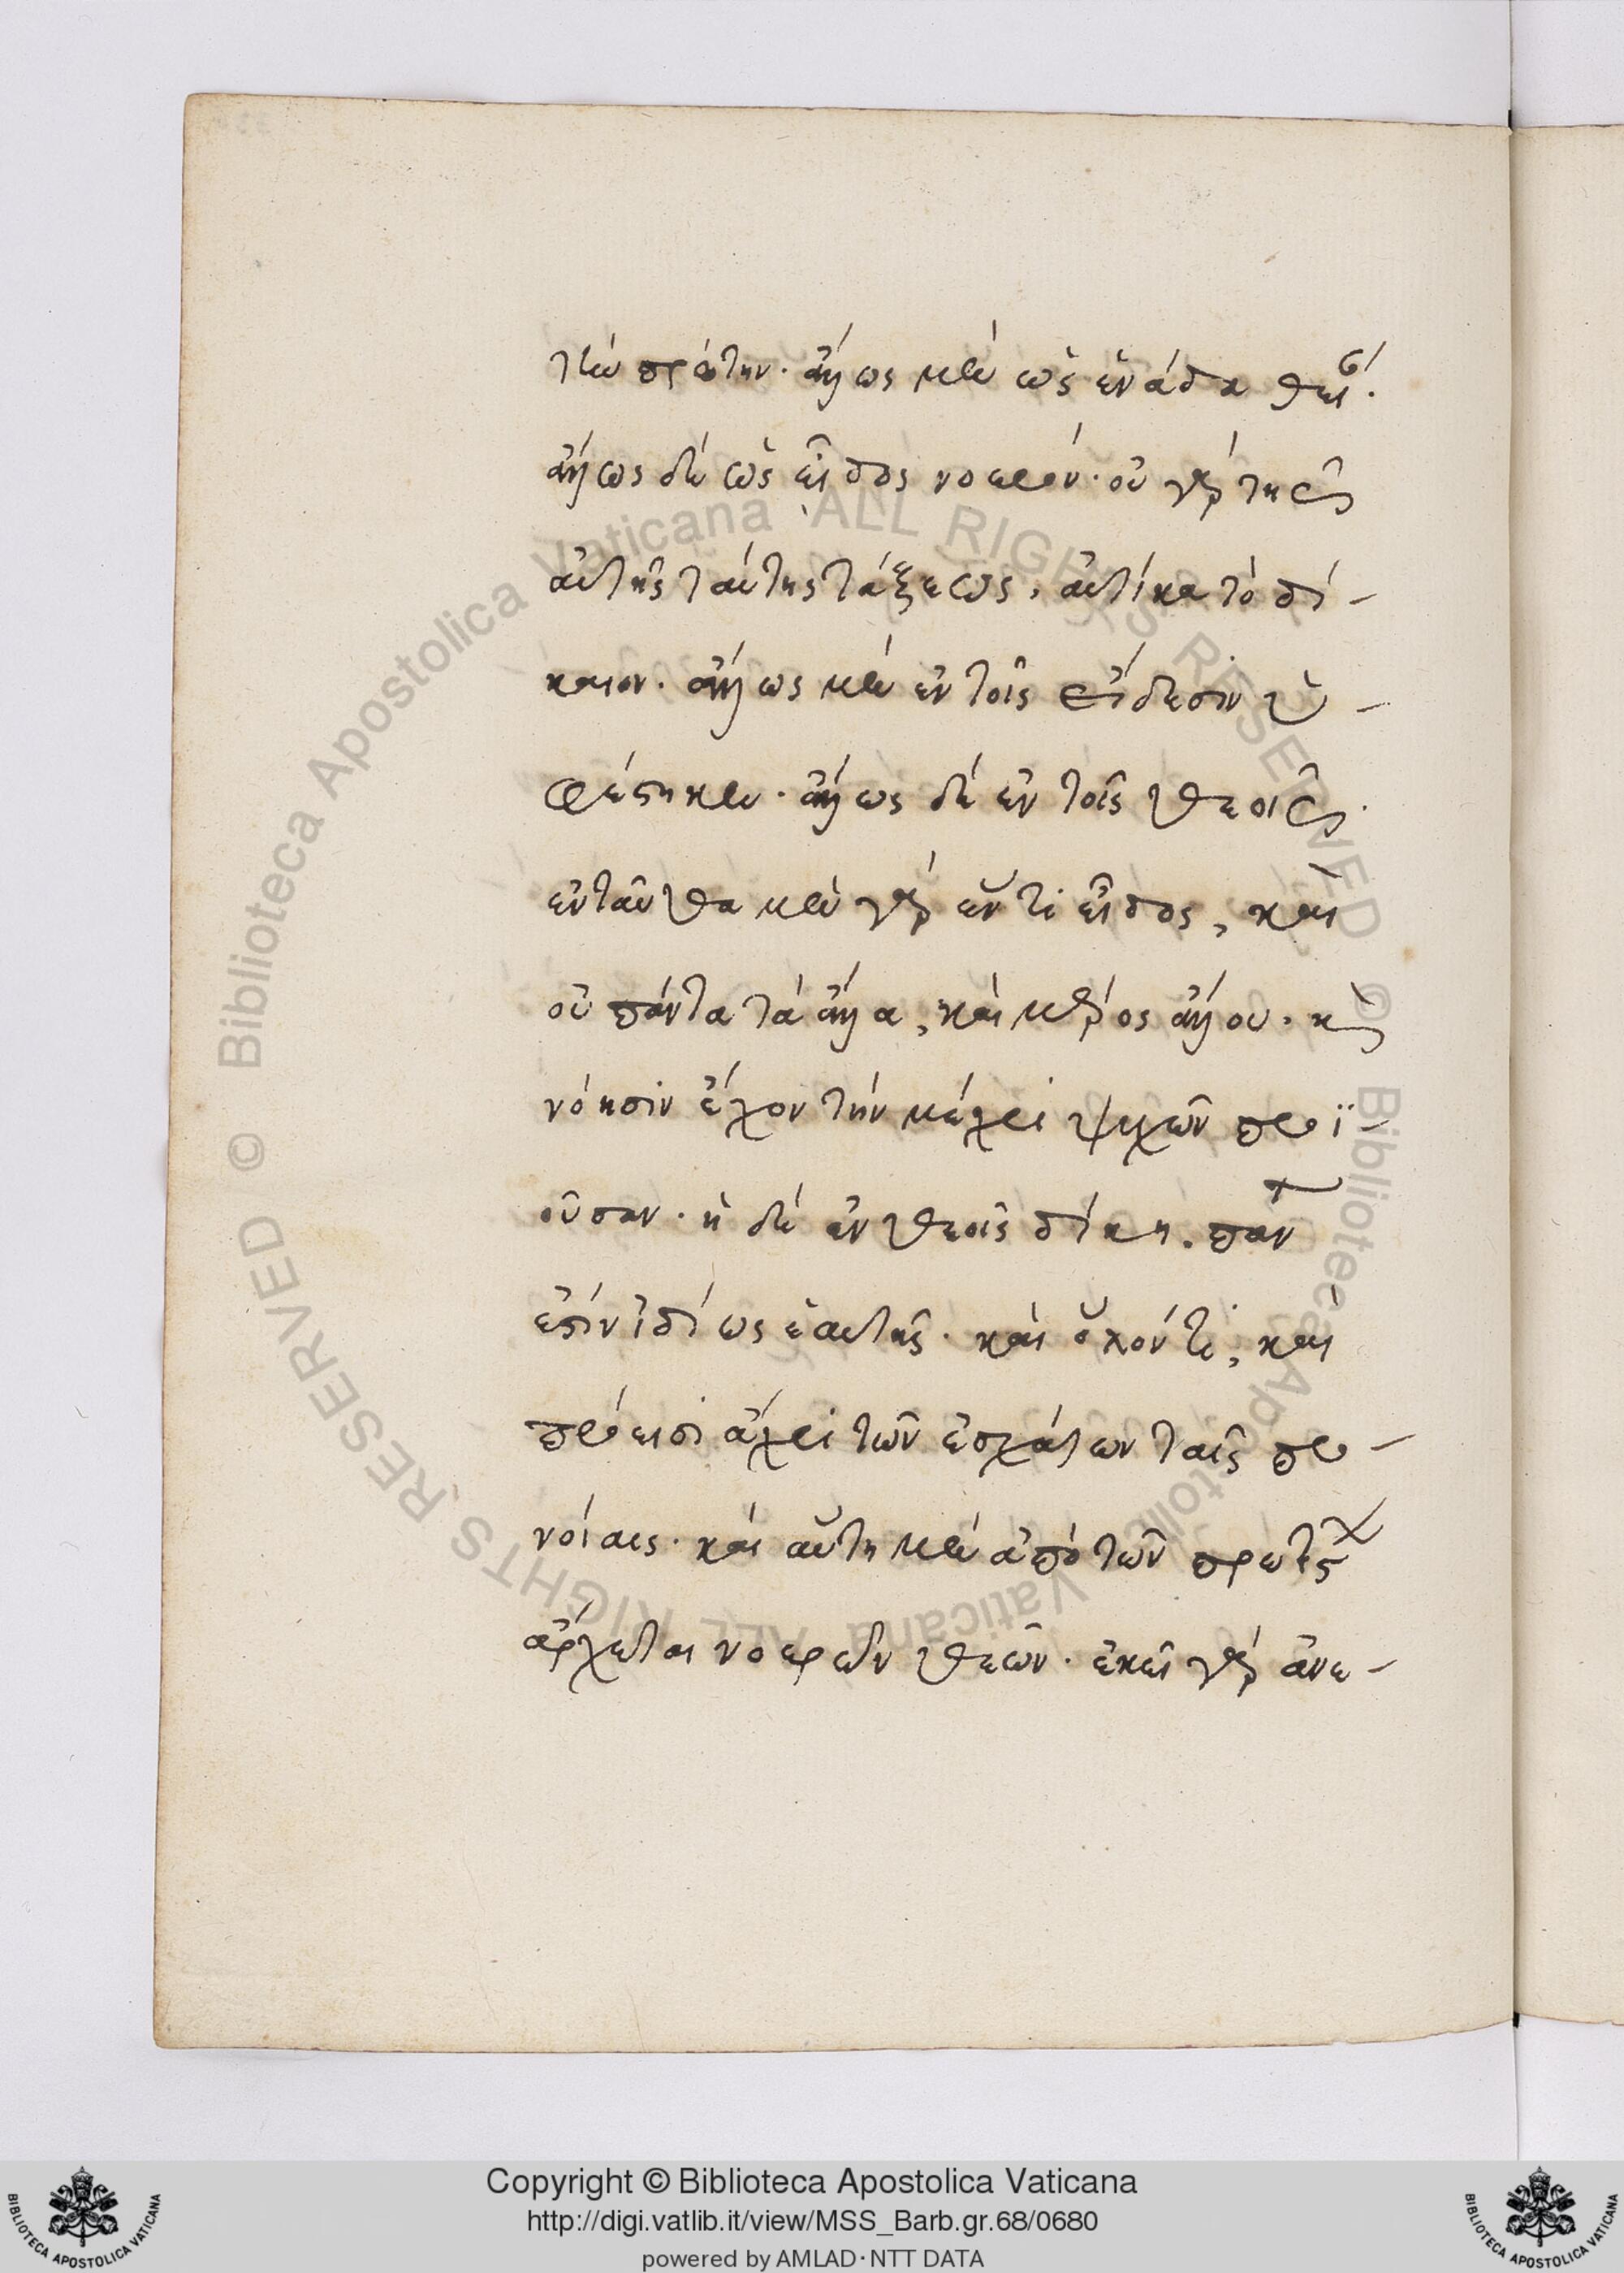 τὴν πρώτην· ἄλλως μὲν ὡς ἑνάδα θείαν·
ἄλλως δὲ ὡς εἶδος νοερόν· οὐ γὰρ τῆς
αὐτῆς ταύτης τάξεως, αὐτίκα τὸ δί-
καιον· ἄλλως μὲν ἐν τοῖς εἴδεσιν ὑ-
φέστηκεν· ἄλλως δὲ ἐν τοῖς θεοῖς·
ἐνταῦθα μὲν γὰρ ἕν τι εἶδος, καὶ
οὐ πάντα τὰ ἄλλα, καὶ μέρος ἄλλου· καὶ
νόησιν ἔχον τὴν μέχρι ψυχῶν προϊ-
οῦσαν· ἡ δὲ ἐν θεοῖς δίκη. πᾶν
ἐστιν ἰδίως ἑαυτῆς· καὶ ὅλον τι, καὶ
πρόεισι ἄχρι τῶν ἐσχάτων ταῖς προ-
νοίαις· καὶ αὕτη μὲν ἀπὸ τῶν πρώτης
ἄρχεται νοερῶν θεῶν· ἐκεῖ γὰρ ἀνε-
Biblioteca Apostolica Vaticana ALL RIGHTS RESERVED ©
Biblioteca Apostolica Vaticana ALL RIGHTS RESERVED ©
Copyright © Biblioteca Apostolica Vaticana
http://digi.vatlib.it/view/MSS_Barb.gr.68/0680
powered by AMLAD·NTT DATA
BIBLIOTECA APOSTOLICA VATICANA
BIBLIOTECA APOSTOLICA VATICANA